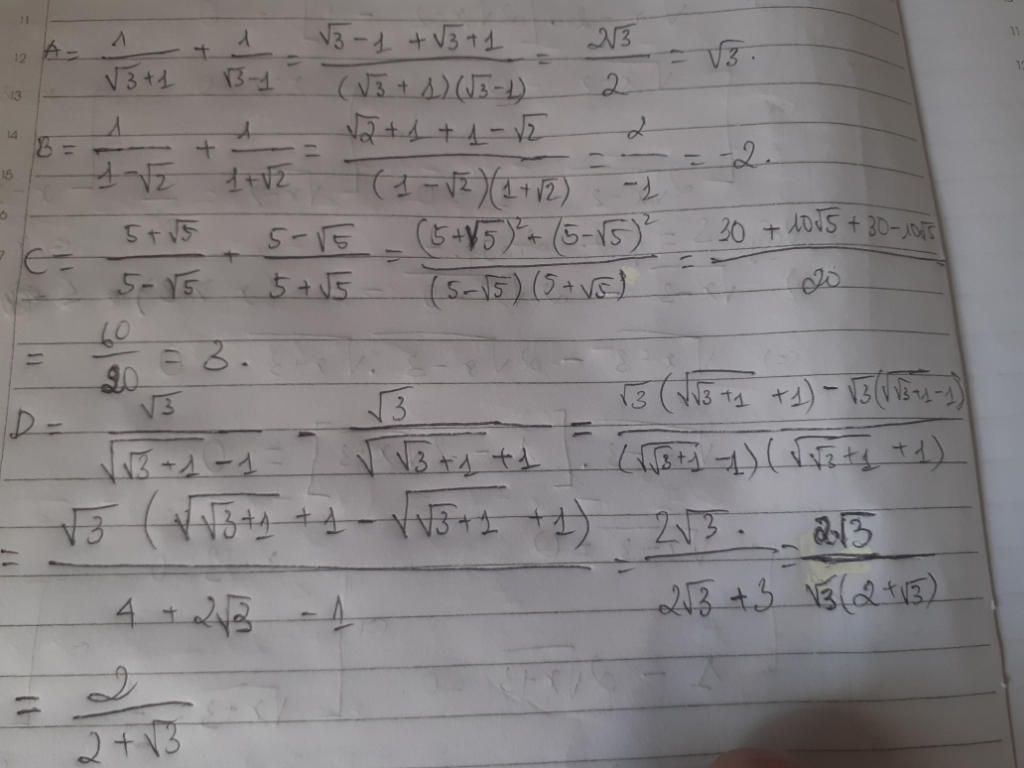 A = 1/(√3+1) + 1/(√3-1) = (√3-1 +√3+1)/((√3+1)(√3-1)) = 2√3/2 = √3.
B = 1/(1-√2) + 1/(1+√2) = (√2+1+1-√2)/((1-√2)(1+√2)) = 2/-1 = -2.
C = (5+√5)/(5-√5) + (5-√5)/(5+√5) = ((5+√5)²+(5-√5)²)/((5-√5)(5+√5)) = (30 + 10√5 + 30-10√5)/20
= 60/20 = 3.
D = √3/(√(√3+1) -1) - √3/(√(√3+1) +1) = (√3(√(√3+1) +1) - √3(√(√3+1) -1))/((√(√3+1) -1)(√(√3+1) +1))
= √3(√(√3+1) +1 - √(√3+1) +1)/(4 + 2√3 -1) = 2√3./(2√3+3) = 2√3/(√3(2+√3))
= 2/(2+√3)